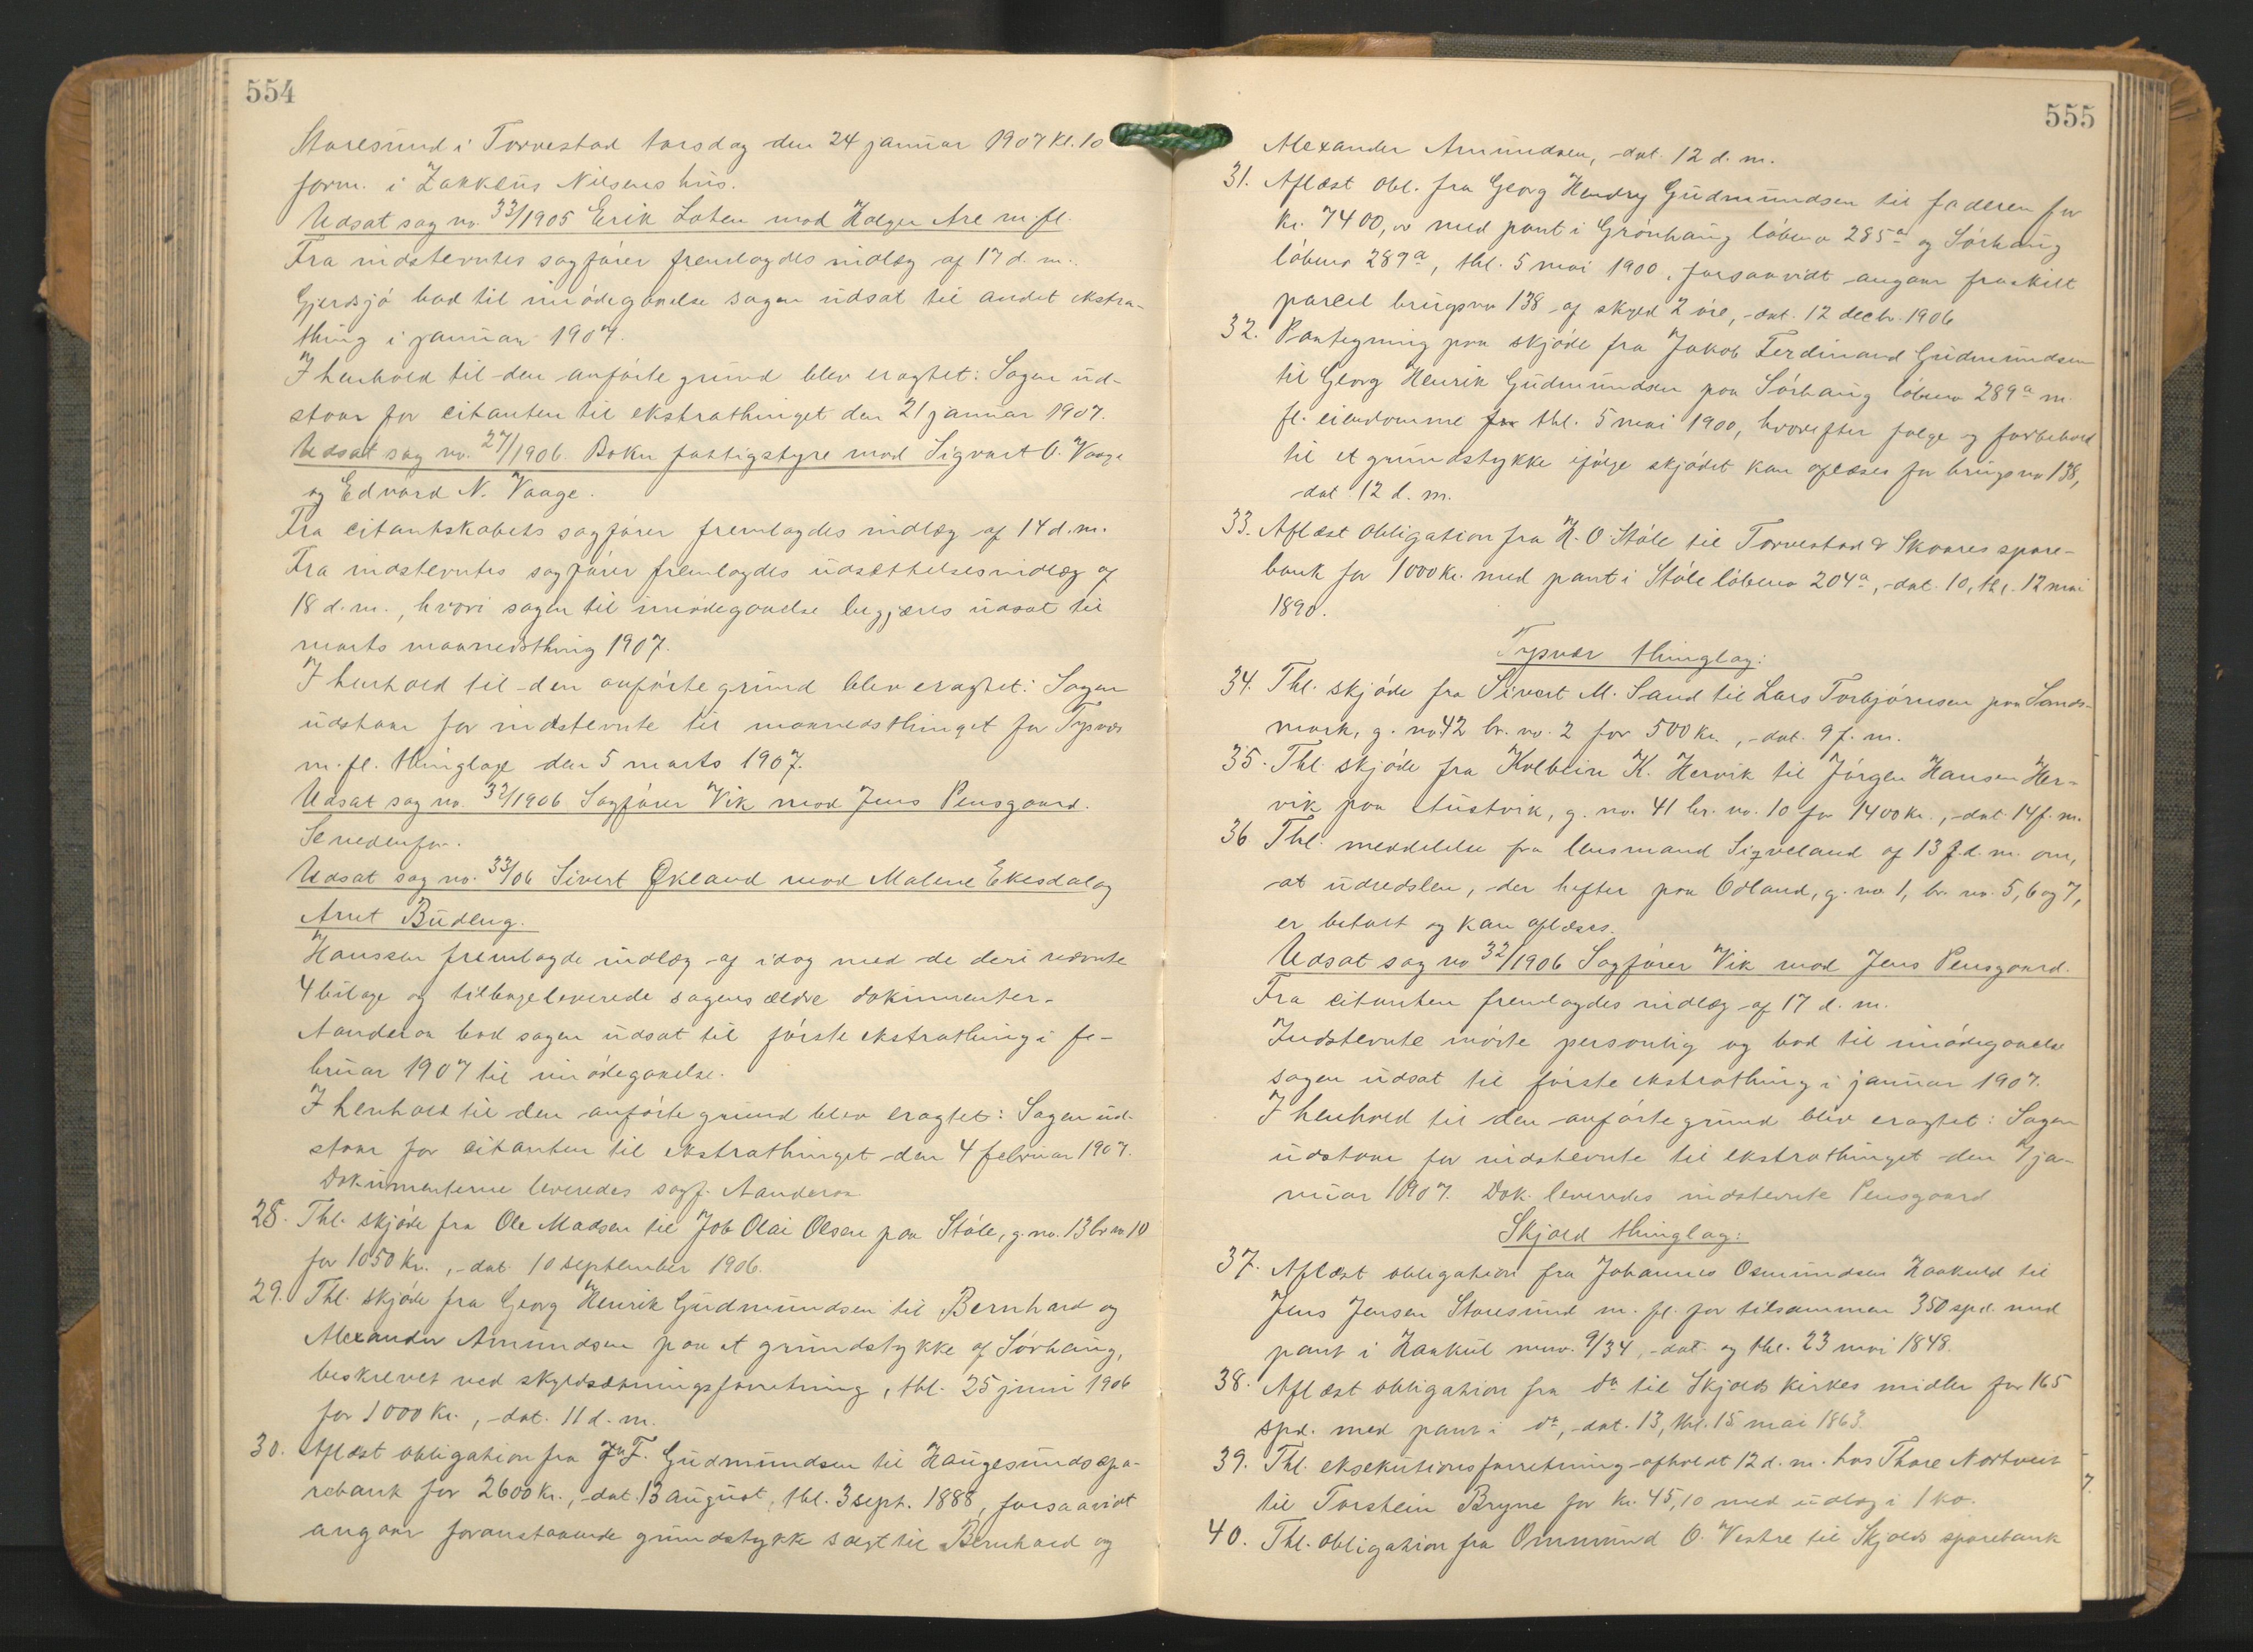 554
Storesund i Torvestad torsdag den 24 januar 1907 kl. 10
form. i Zakkeus Nilsens hus.
Udsat sag no. 33/1905 Erik Loten mod Holger Are m. fl.
Fra indstevntes sagfører fremlagdes indlæg af 17 d. m.
Gjerdsjø bad til imødegaaelse sagen udsat til andet ekstra-
thing i januar 1907.
I henhold til den anførte grund blev eragtet: Sagen ud-
staar for citanten til ekstrathinget den 21 januar 1907.
Udsat sag no. 27/1906 Bokn fattigstyre mod Sigvart O. Vaage
og Edvard N. Vaage.
Fra citantskabets sagfører fremlagdes indlæg af 14 d. m.
Fra indstevntes sagfører fremlagdes udsættelsesindlæg af
18 d. m., hvori sagen til imødegaaelse begjæres udsat til
marts maanedsthing 1907.
I henhold til den anførte grund blev eragtet: Sagen
udstaar for indstevnte til maanedsthinget for Tysvær
m. fl. thinglage den 5 marts 1907.
Udsat sag no. 32/1906 Sagfører Vik mod Jens Pensgaard.
Se nedenfor.
Udsat sag no. 33/06 Sivert Økland mod Malene Ekesdal og
Anet Budeng.
Hanssen fremlagde indlæg af idag med de deri nævnte
4 bilage og tilbageleverede sagens ældre dokumenter.
Aanderaa bad sagen udsat til første ekstrathing i fe-
bruar 1907 til imødegaaelse.
I henhold til den anførte grund blev eragtet: Sagen ud-
staar for citanten til ekstrathinget den 4 februar 1907.
Dokumenterne leveredes sagf. Aanderaa
28. Thl. skjøde fra Ole Madsen til Job Olai Olsen paa Støle, g. no. 13 br no 10
for 1050 kr., dat. 10 september 1906.
29. Thl. skjøde fra Georg Henrik Gudmundsen til Bernhard og
Alexander Amundsen paa et grundstykke af Sørhaug,
beskrevet ved skyldsætningsforretning, thl. 25 juni 1906
for 1000 kr., dat. 11 d. m.
30. Aflæst obligation fra J. F. Gudmundsen til Haugesunds spa-
rebank for 2600 kr., dat. 13 august, thl. 3 sept. 1888, forsaavidt
angaar foranstaaende grundstykke solgt til Bernhard og
555
Alexander Amundsen, dat. 12 d. m.
31. Aflæst obl. fra Georg Hendry Gudmundsen til faderen for
kr. 7400,00 med pant i Grønhaug løbeno 285a og Sørhaug
løbeno 289a, thl. 5 mai 1900, forsaavidt angaar fraskilt
parcel brugsno 138 af skyld 2 øre, dat. 12 decbr. 1906
32. Paategning paa skjøde fra Jakob Ferdinand Gudmundsen
til Georg Henrik Gudmundsen paa Sørhaug løbeno 289a m.
fl. eiendomme thl. 5 mai 1900, hvorefter følge og forbehold
til et grundstykke ifølge skjødet kan aflæses for brugsno 138,
dat. 12 d. m.
33. Aflæst obligation fra H. O. Støle til Torvestad & Skaares spare-
bank for 1000 kr. med pant i Støle løbeno 204a, dat. 10, thl. 12 mai
1890.
Tysvær thinglag:
34. Thl. skjøde fra Sivert M. Sand til Lars Torbjørnsen paa Sands-
mark, g. no 42 br. no. 2 for 500 kr., dat. 9 f. m.
35. Thl. skjøde fra Kolbein K. Hervik til Jørgen Hansen Her-
vik paa Austvik, g. no. 41 br. no. 10 for 1400 kr., dat. 14 f. m.
36 Thl. meddelelse fra lensmand Sigveland af 13 d. m. om,
at udredslen, der hefter paa Ødland, g. no. 1, br. no. 5, 6 og 7,
er betalt og kan aflæses.
Udsat sag no 32/1906 Sagfører Vik mod Jens Pensgaard.
Fra citanten fremlagdes indlæg af 17 d. m.
Indstevnte mødte personlig og bad til imødegaaelse
sagen udsat til første ekstrathing i januar 1907.
I henhold til den anførte grund blev eragtet: Sagen
udstaar for indstevnte til ekstrathinget den 7 ja-
nuar 1907. Dok. leveredes indstevnte Pensgaard
Skjold thinglag:
37. Aflæst obligation fra Johannes Osmundsen Haakuld til
Jens Jensen Storesund m. fl. for tilsammen 350 spd. med
pant i Haakul mno. 9/34, dat. og thl. 23 mai 1848.
38. Aflæst obligation fra do til Skjolds kirkes midler for 165
spd. med pant i do, dat. 13, thl. 15 mai 1863.
39. Thl. eksekutionsforretning afholdt 12 d. m. hos Thore Nortveit
til Torstein Bryne for kr. 45,10 med udlæg i 1 ko.
40. Thl. obligation fra Ommund O. Vestre til Skjolds sparebank